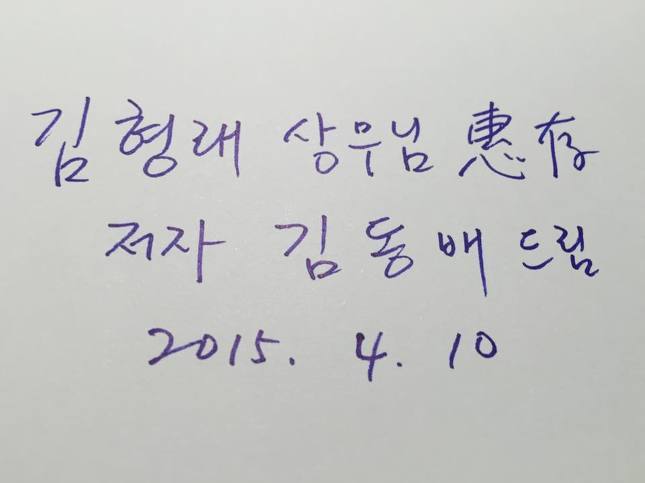 김형래 상무님 惠存
저자 김동배 드림
2015. 4. 10